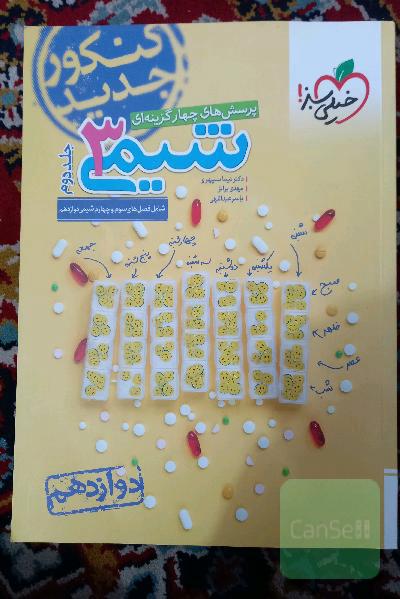 کنکور
جدید
خیلی سبز!
پرسش‌های چهارگزینه‌ای
شیمی ۳
جلد دوم
دکتر نیما سپهری
مهدی براتی
یاسر عبداللهی
شامل فصل‌های سوم و چهارم شیمی دوازدهم
شنبه
یکشنبه
دوشنبه
سه شنبه
چهارشنبه
پنج شنبه
جمعه
صبح
ظهر
عصر
شب
دوازدهم
CanSell